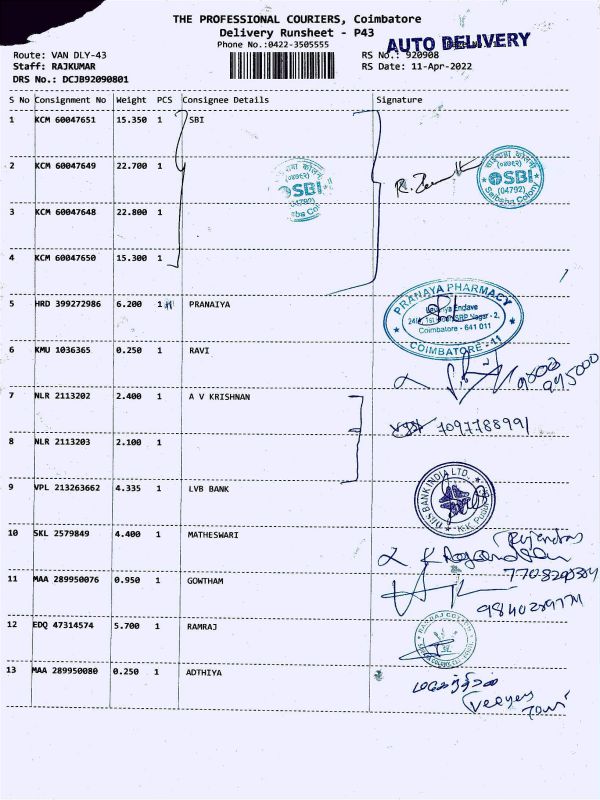 THE PROFESSIONAL COURIERS, Coimbatore
Delivery Runsheet - P43
Phone No.:0422-3505555
AUTO DELIVERY
Route: VAN DLY-43
Staff: RAJKUMAR
DRS No.: DCJB92090801
RS No.: 920908
RS Date: 11-Apr-2022
S No Consignment No Weight PCS Consignee Details Signature
1 KCM 60047651 15.350 1 SBI
2 KCM 60047649 22.700 1
SBI
(04792)
SBI
(04792)
Saibaba Colony
3 KCM 60047648 22.800 1
4 KCM 60047650 15.300 1
5 HRD 399272986 6.200 1 PRANAIYA
PRANAYA PHARMACY
Coimbatore - 641 011
COIMBATORE - 11
6 KMU 1036365 0.250 1 RAVI
7 NLR 2113202 2.400 1 A V KRISHNAN
7097788991
8 NLR 2113203 2.100 1
9 VPL 213263662 4.335 1 LVB BANK
DBS BANK INDIA LTD.
10 SKL 2579849 4.400 1 MATHESWARI
11 MAA 289950076 0.950 1 GOWTHAM
12 EDQ 47314574 5.700 1 RAMRAJ
RAMRAJ COTTON
13 MAA 289950080 0.250 1 ADTHIYA